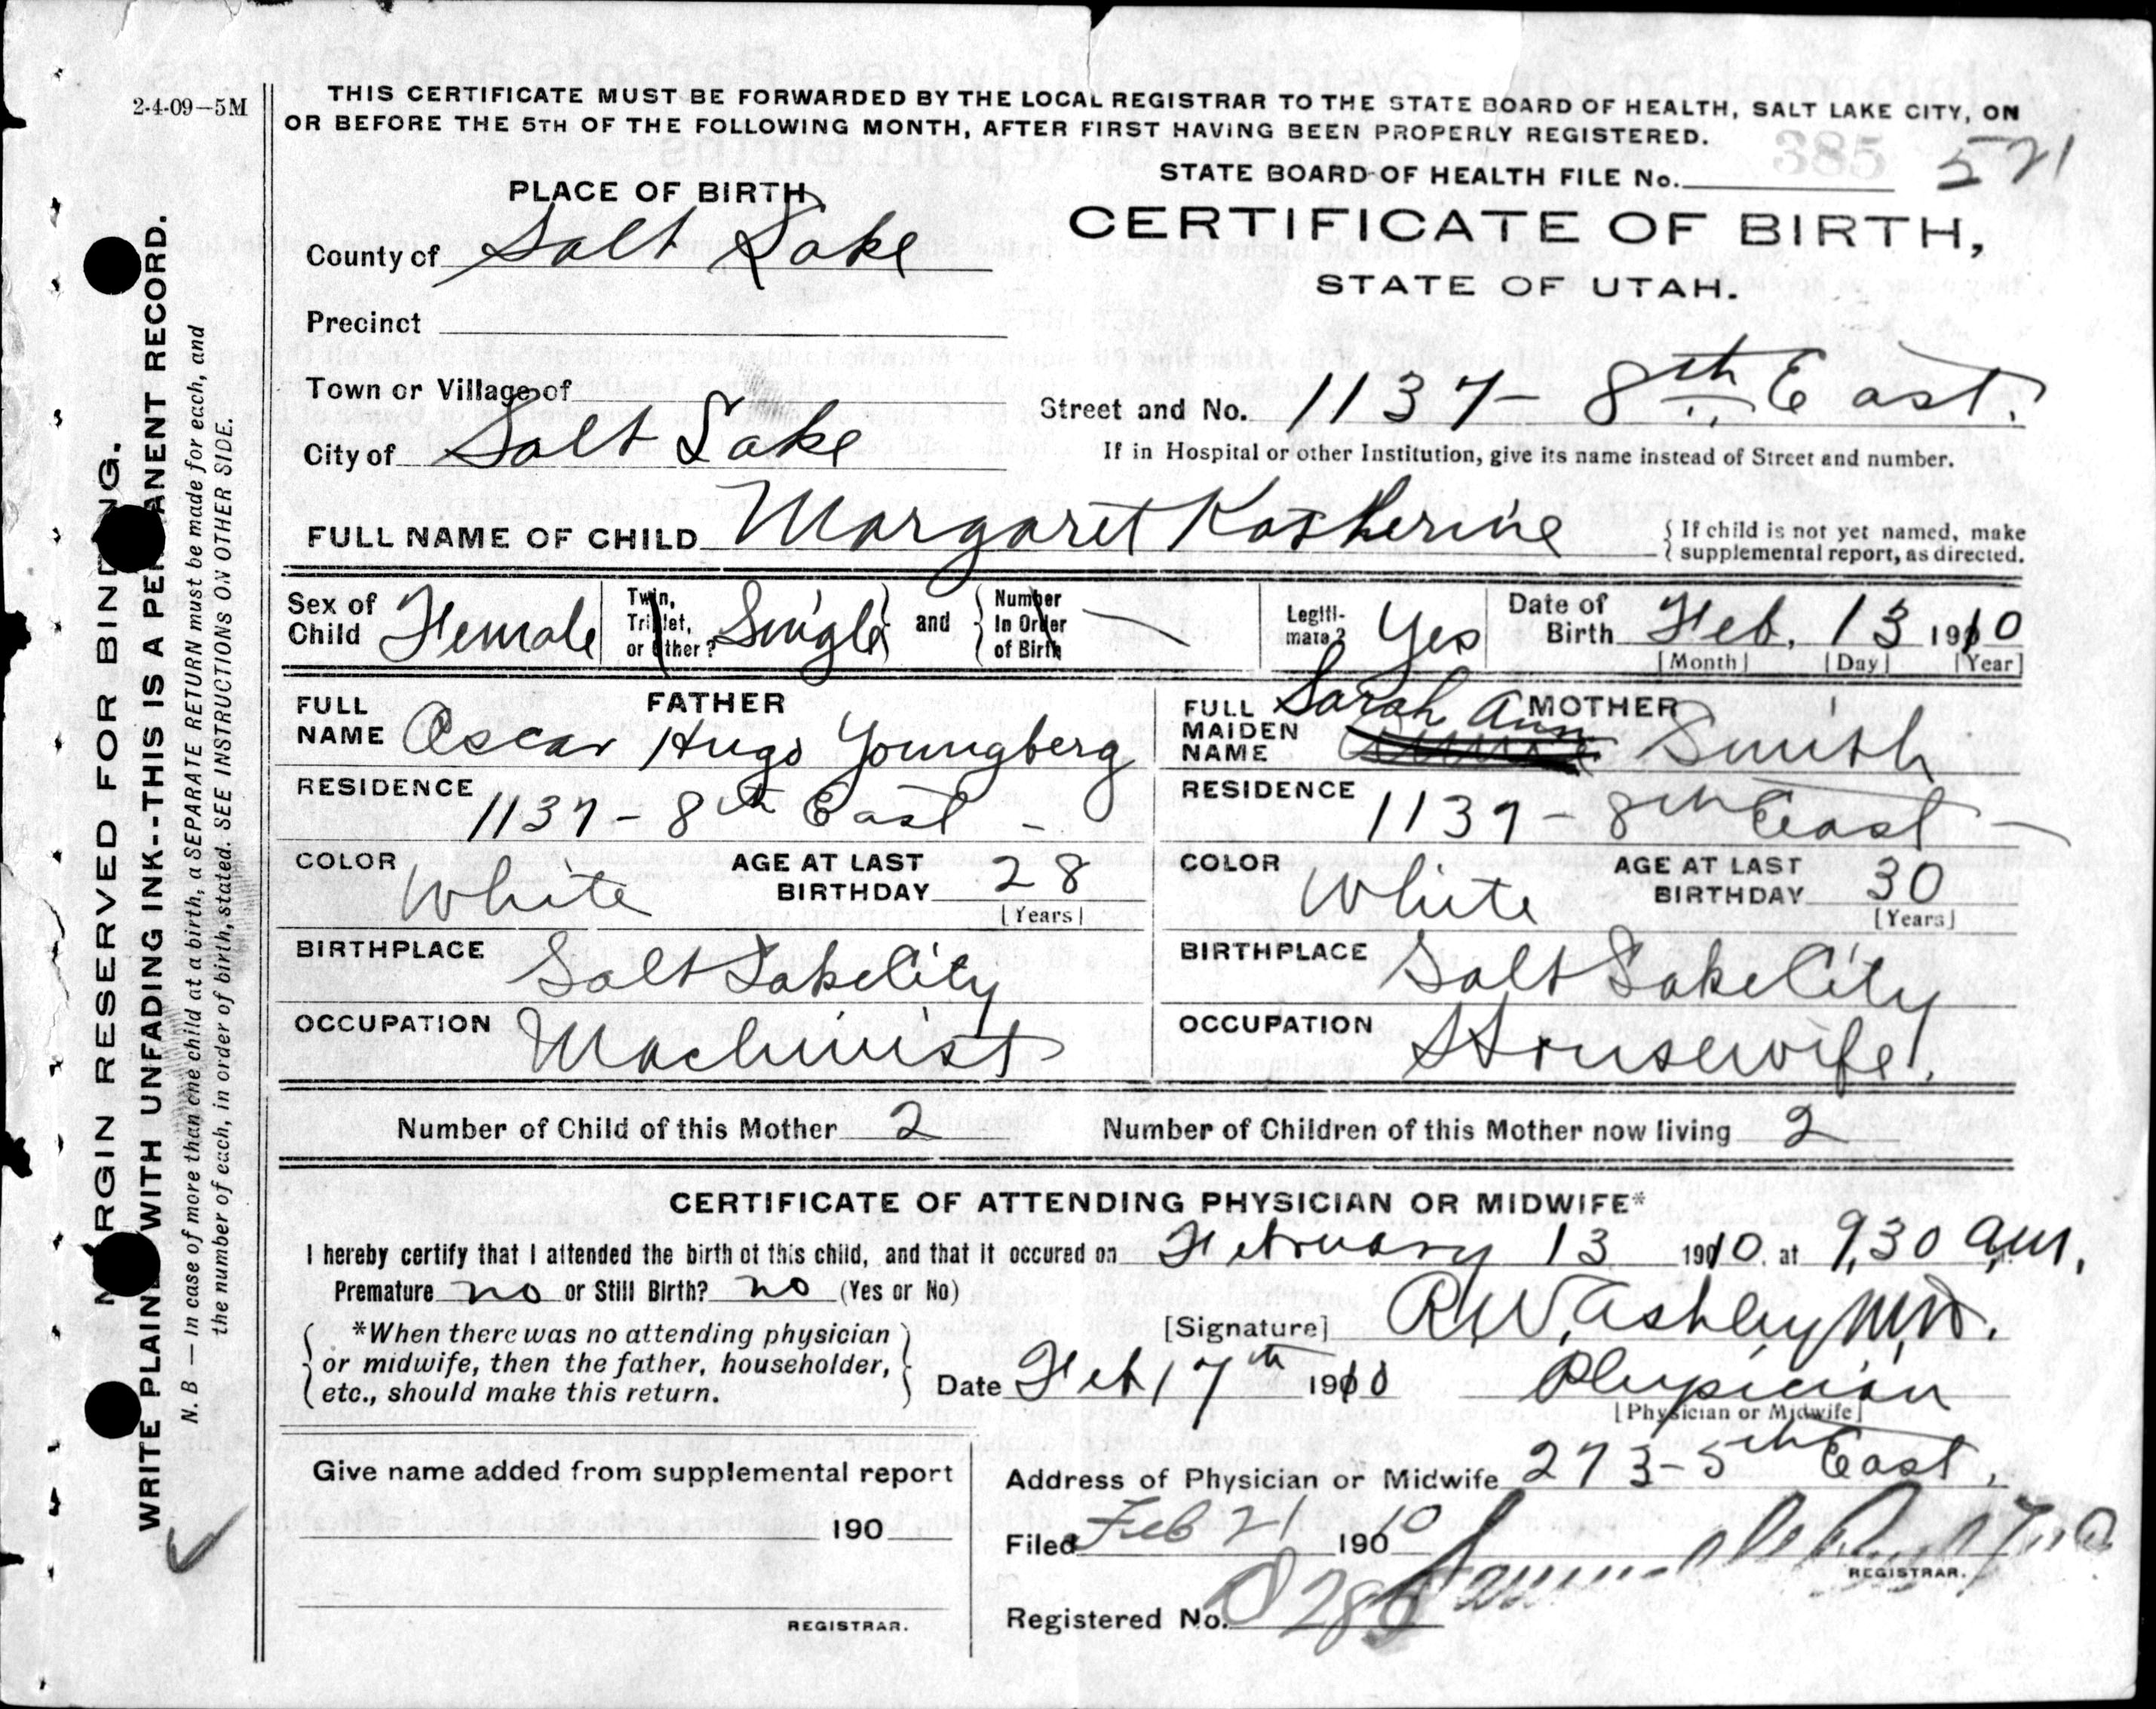 2-4-09—5M
THIS CERTIFICATE MUST BE FORWARDED BY THE LOCAL REGISTRAR TO THE STATE BOARD OF HEALTH, SALT LAKE CITY, ON
OR BEFORE THE 5TH OF THE FOLLOWING MONTH, AFTER FIRST HAVING BEEN PROPERLY REGISTERED.
STATE BOARD OF HEALTH FILE No. 385 521
PLACE OF BIRTH
CERTIFICATE OF BIRTH,
STATE OF UTAH.
County of Salt Lake
Precinct
Town or Village of
Street and No. 1137 - 8th East.
If in Hospital or other Institution, give its name instead of Street and number.
City of Salt Lake
FULL NAME OF CHILD Margaret Katherine
{ If child is not yet named, make
supplemental report, as directed.
Sex of Child Female
Twin, Triplet, or other? Single and Number In Order of Birth —
Legiti-mate? Yes
Date of Birth Feb. 13 1910
[Month] [Day] [Year]
FATHER
FULL NAME Oscar Hugo Youngberg
RESIDENCE 1137 - 8th East -
COLOR White AGE AT LAST BIRTHDAY 28
[Years]
BIRTHPLACE Salt Lake City
OCCUPATION Machinist
MOTHER
FULL MAIDEN NAME Sarah Ann Smith
RESIDENCE 1137 - 8th East -
COLOR White AGE AT LAST BIRTHDAY 30
[Years]
BIRTHPLACE Salt Lake City
OCCUPATION Housewife.
Number of Child of this Mother 2 Number of Children of this Mother now living 2
CERTIFICATE OF ATTENDING PHYSICIAN OR MIDWIFE*
I hereby certify that I attended the birth of this child, and that it occured on February 13 1910. at 9,30 am.
Premature no or Still Birth? no (Yes or No)
*When there was no attending physician
or midwife, then the father, householder,
etc., should make this return.
[Signature] R.W. Ashley M.D.
Date Feb 17th 1910 Physician
[Physician or Midwife]
Give name added from supplemental report
190
REGISTRAR.
Address of Physician or Midwife 273 - 5th East.
Filed Feb 21 1910
REGISTRAR.
Registered No.
MARGIN RESERVED FOR BINDING.
WRITE PLAINLY WITH UNFADING INK--THIS IS A PERMANENT RECORD.
N. B — In case of more than one child at a birth, a SEPARATE RETURN must be made for each, and
the number of each, in order of birth, stated. SEE INSTRUCTIONS ON OTHER SIDE.